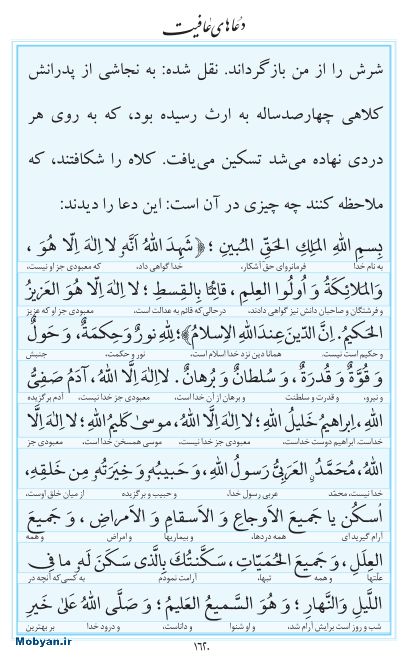 دعاهای عافیت
شرش را از من بازگرداند. نقل شده: به نجاشی از پدرانش
کلاهی چهارصدساله به ارث رسیده بود، که به روی هر
دردی نهاده می‌شد تسکین می‌یافت. کلاه را شکافتند، که
ملاحظه کنند چه چیزی در آن است: این دعا را دیدند:
بِسمِ اللّٰهِ المَلِكِ الحَقِّ المُبينِ ؛ ﴿شَهِدَ اللّٰهُ اَنَّه لا اِلٰهَ اِلّا هُوَ ،
به نام خدا فرمانروای حق آشکار، خدا گواهی داد، که معبودی جز او نیست،
وَالمَلائِكَةُ وَ اُولُوا العِلمِ ، قائِمًا بِالقِسطِ ؛ لا اِلٰهَ اِلّا هُوَ العَزيزُ
و فرشتگان و صاحبان دانش نیز گواهی دادند، درحالی‌که قائم به عدالت است، معبودی جز او که عزیز
الحَكيمُ. اِنَّ الدّينَ عِندَ اللّٰهِ الاِسلامُ﴾؛ لِلّٰهِ نورٌ وَ حِكمَةٌ، وَ حَولٌ
و حکیم است نیست. همانا دین نزد خدا اسلام است، نور و حکمت، جنبش
وَ قُوَّةٌ وَ قُدرَةٌ ، وَ سُلطانٌ وَ بُرهانٌ . لا اِلٰهَ اِلَّا اللّٰهُ، آدَمُ صَفِیُّ
و نیرو، و قدرت و سلطنت و برهان از آن خدا است، معبودی جز خدا نیست، آدم برگزیده
اللّٰهِ، اِبراهيمُ خَليلُ اللّٰهِ ؛ لا اِلٰهَ اِلَّا اللّٰهُ، موسىٰ كَليمُ اللّٰهِ ؛ لا اِلٰهَ اِلَّا
خداست. ابراهیم دوست خداست، معبودی جز خدا نیست، موسی همسخن خدا است، معبودی جز
اللّٰهُ، مُحَمَّدٌ العَرَبِیُّ رَسولُ اللّٰهِ، وَ حَبيبُه وَ خِيَرَتُه مِن خَلقِهِ،
خدا نیست، محمّد عربی رسول خدا، و حبیب و برگزیده از میان خلق اوست،
اُسكُن يا جَميعَ الاَوجاعِ وَ الاَسقامِ وَ الاَمراضِ ، وَ جَميعَ
آرام گیر ای همه دردها، و بیماریها و امراض ، و همه
العِلَلِ، وَ جَميعَ الحُمَيّاتِ، سَكَّنتُكَ بِالَّذى سَكَنَ لَه ما فِى
علّتها و همه تبها، آرامت نمودم به کسی که آنچه در
اللَّيلِ وَالنَّهارِ ؛ وَ هُوَ السَّميعُ العَليمُ ؛ وَ صَلَّى اللّٰهُ عَلىٰ خَيرِ
شب و روز است برایش آرام شد، و او شنوا و داناست، و درود خدا بر بهترین
١٦٢٠
Mobyan.ir